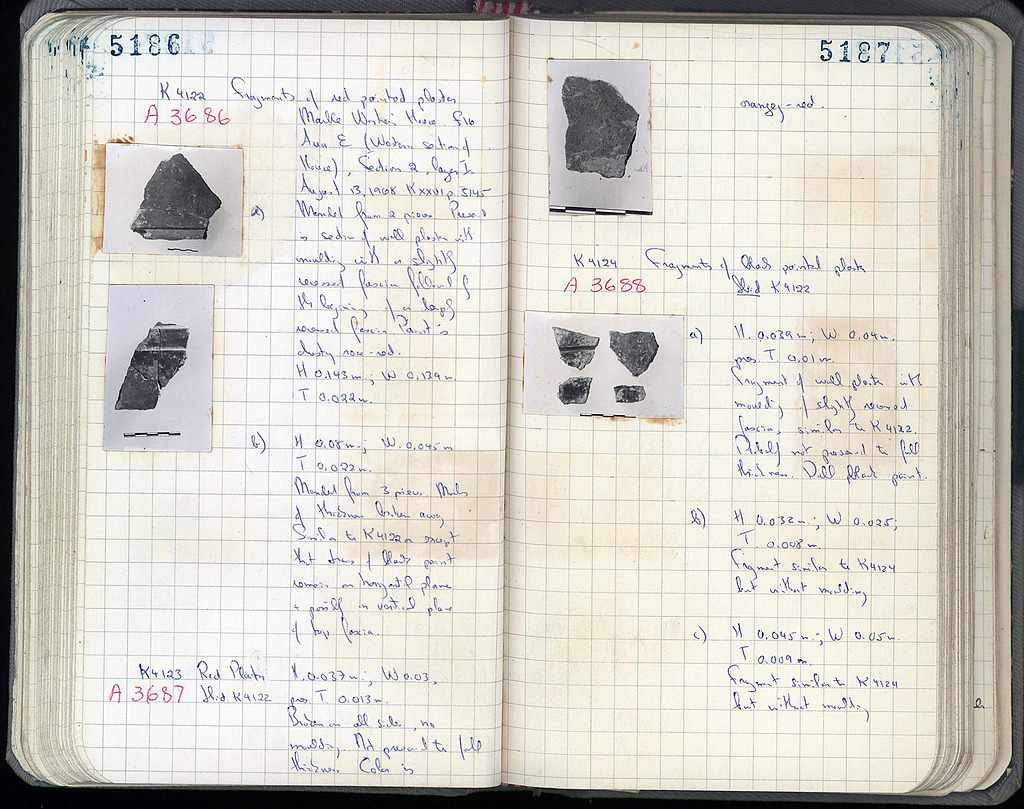 5186
K 4122 Fragments of red painted plaster
A 3686
Marble Workers House F16
Area E (Western section of
House), Section 2, layer I
August 13, 1968 KXXVI p. 5145
a) Mended from 2 pieces. Preserved
is section of wall plaster with
moulding with a slightly
recessed fascia followed by
the beginning of a deeply
recessed fascia. Paint is
dusty rose-red.
H 0.143 m.; W 0.134 m.
T 0.022 m.
b) H 0.08 m.; W. 0.045 m
T 0.022 m.
Mended from 3 pieces. Much
of thickness broken away
Similar to K4122a except
that traces of black paint
remain on horizontal plane
+ possibly on vertical plane
of top fascia.
K4123 Red Plaster H. 0.037 m.; W 0.03,
A 3687 Ibid. K4122 pres. T. 0.013 m.
Broken on all sides, no
moulding. Not preserved to full
thickness. Color is
5187
orangey-red.
K4124 Fragments of black painted plaster
A 3688 Ibid K4122
a) H. 0.039 m; W 0.04 m.
pres. T 0.01 m.
Fragment of wall plaster with
moulding of slightly recessed
fascia, similar to K4122.
Probably not preserved to full
thickness. Dull black paint.
b) H 0.032 m.; W 0.025;
T 0.008 m.
Fragment similar to K4124
but without moulding
c) H 0.045 m.; W 0.05 m.
T 0.009 m.
Fragment similar to K4124
but without moulding